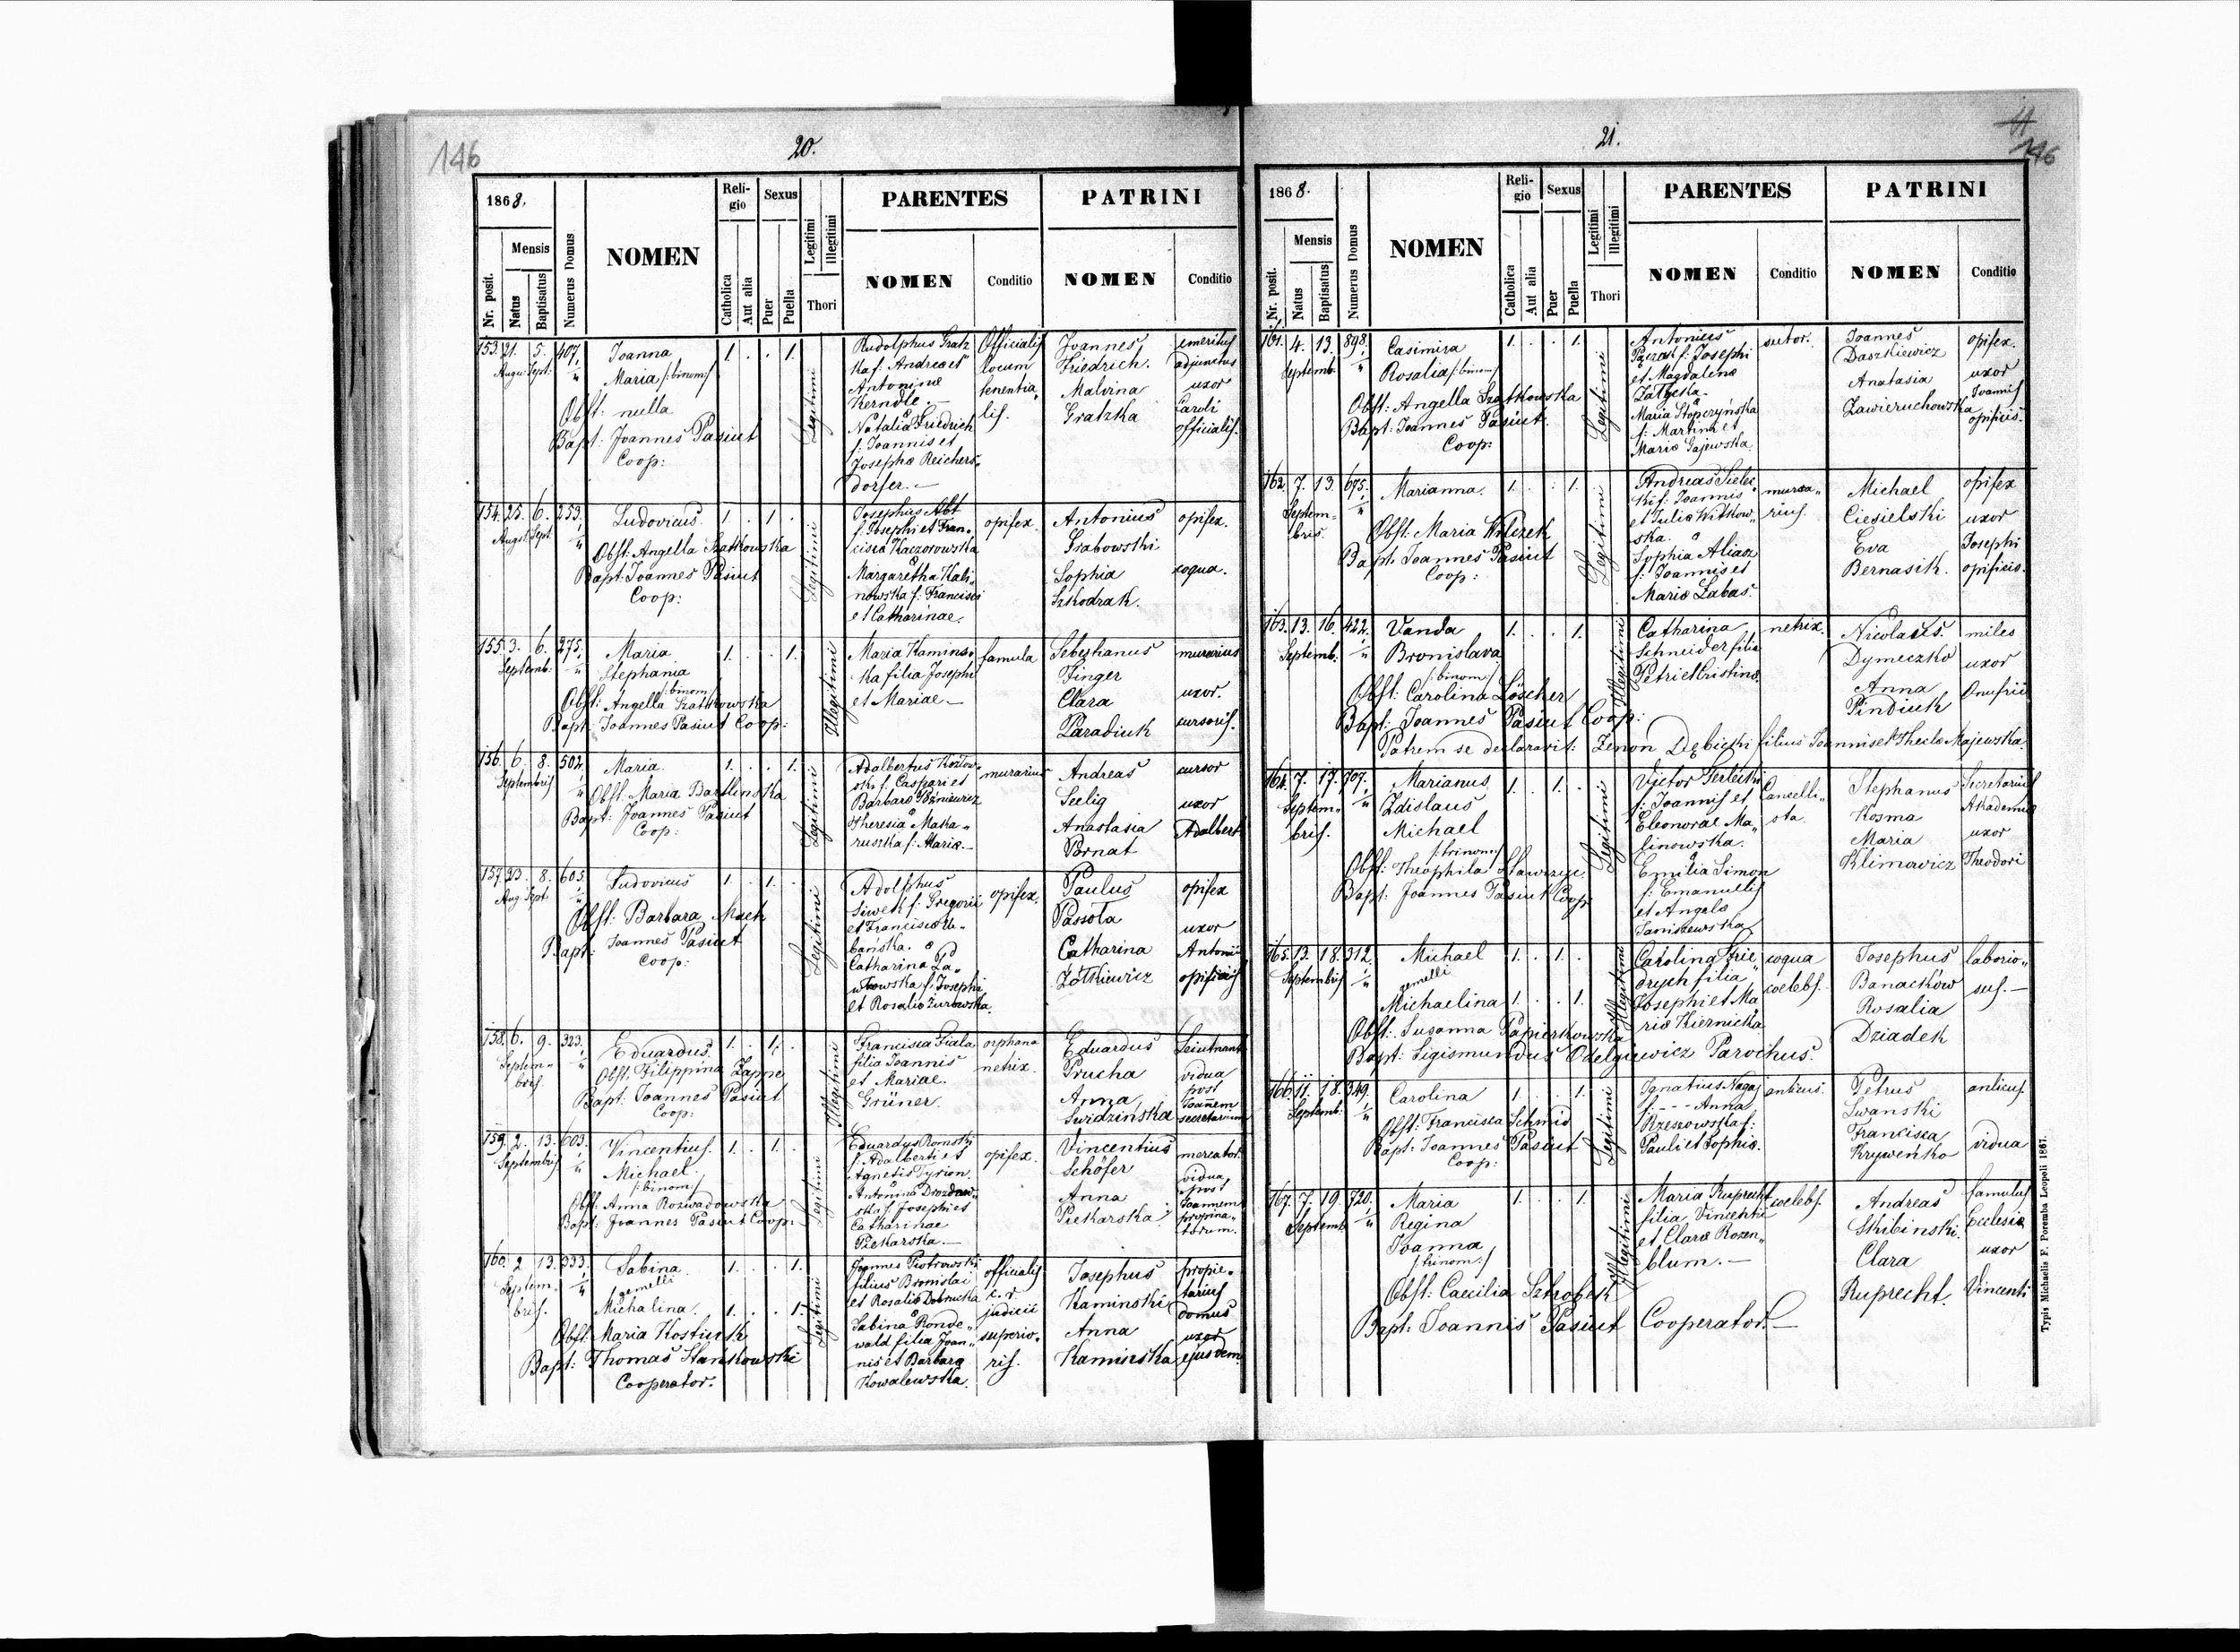 146
20.
1868.
Nr. posit.
Mensis
Natus
Baptisatus
Numerus Domus
NOMEN
Reli-
gio
Catholica
Aut alia
Sexus
Puer
Puella
Legitimi
Illegitimi
Thori
PARENTES
NOMEN
Conditio
PATRINI
NOMEN
Conditio
153. 21. 5. 407.
Augu. Sept.
Joanna
Maria /:binom:/
Obst: nulla
Bapt: Joannes Pasiut
Coop:
1. . . 1.
Legitimi
Rudolphus Gratz
ka f: Andreae et
Antoninae
Kerndle. —
Natalia Friedrich
f: Joannis et
Josephae Reichers-
dorfer. —
Officialis
locum
tenentia
lis.
Joannes
Friedrich.
Malvina
Gratzka
emeritus
adjunctus
uxor
Caroli
officialis.
154. 25. 6. 253.
August. Sept.
Ludovicus.
Obst: Angella Szatkowska
Bapt: Joannes Pasiut
Coop:
1. . 1 .
Legitimi
Josephus Abt
f: Josephi et Fran-
cisca Kaczorowska
Margaretha Kali-
nowska f: Francisci
et Catharinae.
opifex.
Antonius
Grabowski
Sophia
Szkodrak.
opifex.
coqua.
155. 3. 6. 275.
Septemb.
Maria
Stephania
/:binom/
Obst: Angella Szatkowska
Bapt: Joannes Pasiut Coop:
1. . . 1.
Illegitimi
Maria Kamins-
ka filia Josephi
et Mariae. —
famula
Sebestianus
Finger
Clara
Paradiuk
murarius
uxor.
cursoris.
156. 6. 8. 502.
Septembris
Maria.
Obst. Maria Bartlinska
Bapt: Joannes Pasiut
Coop:
1. . . 1.
Legitimi
Adalbertus Kozlow-
ski f. Caspari et
Barbara
Theresia Maka-
ruszka f: Mariae. —
murarius
Andreas
Seelig
Anastasia
Pornat
cursor
uxor
Adalberti
157. 23. 8. 603.
Aug. Sept.
Ludovicus
Obst: Barbara Mach
Bapt: Joannes Pasiut
Coop:
1. . 1. .
Legitimi
Adolphus
Siwek f: Gregorii
et Francisca Ur-
bańska.
Catharina Za-
wkowska f: Josephi
et Rosalia Żurowska.
opifex.
Paulus
Passota
Catharina
Żółkiewicz
opifex
uxor
Antonii
opificis
158. 6. 9. 323.
Septem-
bris.
Eduardus.
Obst: Filippina Zappe
Bapt: Joannes Pasiut
Coop:
1. . 1. .
Illegitimi
Francisca Fiala
filia Joannis
et Mariae.
Grüner.
orphana
netrix.
Eduardus
Prucha
Anna
Swidzińska
Leiutnant
vidua
post
Joanem
secretarium
159. 2. 13. 603.
Septembris
Vincentius.
Michael.
/:binom/
Obst: Anna Rozwadowska
Bapt: Joannes Pasiut Coop:
1. . 1. .
Legitimi
Eduardus Romski
f. Adalberti et
Agnetis Tyrion.
Antonina Drozdow-
ska f. Josephi et
Catharinae
Piekarska. —
opifex.
Vincentius
Schöfer
Anna
Piekarska
mercator.
vidua
post
Joannem
propina-
torum.
160. 2 13. 333.
Septem-
bris.
Sabina.
gemelli
Michalina.
Obst: Maria Kostiuk
Bapt: Thomas Stankowski
Cooperator.
1. . . 1.
1. . . 1.
Legitimi
Joannes Piotrowski
filius Bronislai
et Rosalia Dobrucka
Sabina Ronde-
wald filia Joan-
nis et Barbara
Kowalewska.
officialis
c. r
judicii
superio-
ris.
Josephus
Kaminski
Anna
Kaminska
proprie-
tarius
domus
uxor
ejusdem.
11
146
21.
1868.
Nr. posit.
Mensis
Natus
Baptisatus
Numerus Domus
NOMEN
Reli-
gio
Catholica
Aut alia
Sexus
Puer
Puella
Legitimi
Illegitimi
Thori
PARENTES
NOMEN
Conditio
PATRINI
NOMEN
Conditio
161. 4. 13. 898.
Septemb.
Casimira
Rosalia /:binom/
Obst: Angella Szatkowska
Bapt: Joannes Pasiut.
Coop:
1. . . 1.
Legitimi
Antonius
f: Josephi
et Magdalena
Maria Stopczyńska
f: Martini et
Maria Gajewska.
sutor.
Joannes
Daszkiewicz
Anatasia
Zawieruchowska
opifex.
uxor
Joannis
opificis.
162. 7. 13. 675.
Septem-
bris.
Marianna.
Obst: Maria Wilczek
Bapt. Joannes Pasiut
Coop:
1. . . 1.
Legitimi
Andreas Sielec-
ki f: Joannis
et Julia Witkow-
ska.
Sophia Aliasz
f: Joannis et
Maria Labas.
mura-
rius.
Michael
Ciesielski
Eva
Bernasik.
opifex
uxor
Josephi
opificis.
163. 13. 16. 422.
Septemb.
Vanda
Bronislava
/:binom/
Obst: Carolina Löscher
Bapt: Joannes Pasiut Coop:
Patrem se declaravit: Zenon Dębicki filius Joannis et Thecla Majewska.
1. . . 1.
Illegitimi
Catharina
Schneider filia
Petri et Cristina
netrix.
Nicolaus.
Dymeczko
Anna
Pindiuk
miles
uxor
Onufrii
164. 7. 17. 707.
Septem-
bris.
Marianus
Zdislaus
Michael
/:trinom:/
Obst: Theophila
Bapt: Joannes Pasiut Coop:
1. . 1. .
Legitimi
Victor Terlecki
f: Joannis et
Eleonorae Ma-
linowska.
Emilia Simon
f: Emanuelis
et Angela
Janiszewska.
Cancelli-
sta.
Stephanus
Kosma
Maria
Klimowicz
Secretarius
Akademiae
uxor
Theodori
165. 13. 18. 312.
Septembris
Michael
gemelli
Michaelina
Obst: Susanna Papierkowska
Bapt: Sigismundus Odelgiewicz Parochus.
1. . 1. .
1. . . 1.
Illegitimi
Carolina Frie-
drych filia
Josephi et Ma-
ria Kiernicka
coqua
coelebs.
Josephus
Banaćkow
Rosalia
Dziadek
laborio-
sus. —
166. 11. 18. 349.
Septemb.
Carolina
Obst: Francisca Schmid
Bapt: Joannes Pasiut
Coop:
1. . . 1.
Legitimi
Ignatius Nagaj
f: - - - Anna
Rzeszowska f:
Pauli et Sophia.
anticus.
Petrus
Iwanski
Francisca
Krywenko
anticus.
vidua
167. 7. 19. 720.
Septemb.
Maria
Regina
Joanna
/:trinom:/
Obst: Caecilia Sztrobek
Bapt: Joannis Pasiut Cooperator. —
1. . . 1.
Illegitimi
Maria Ruprecht
filia Vincentii
et Clara Rozen-
blum. —
coelebs.
Andreas
Skibinski.
Clara
Ruprecht.
famulus
Ecclesia
uxor
Vincenti
Typis Michaelis F. Poremba Leopoli 1867.